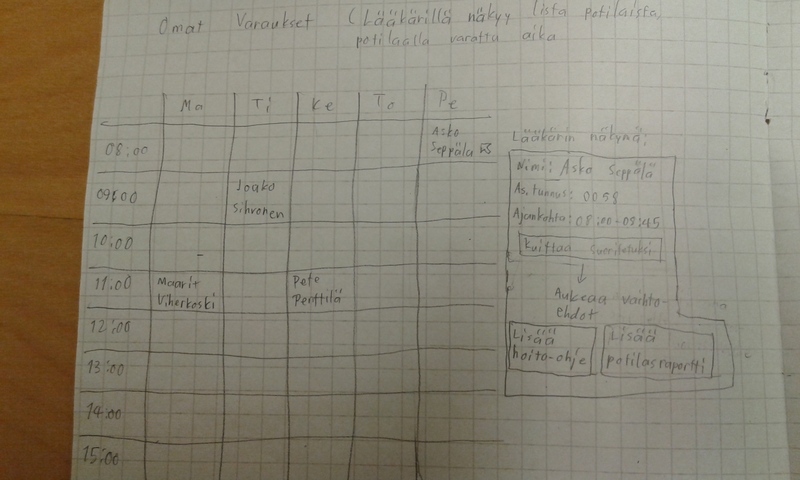 Omat Varaukset (Lääkärillä näkyy lista potilaista,
potilaalla varattu aika
Ma Ti Ke To Pe
08:00 Asko
Seppälä
09:00 Joako
Sihvonen
10:00
11:00 Maarit Pete
Viherkoski Penttilä
12:00
13:00
14:00
15:00
Lääkärin näkymä:
Nimi: Asko Seppälä
As.tunnus: 0058
Ajankohta: 08:00-08:45
Kuittaa suoritetuksi
Aukeaa vaihto-
ehdot
Lisää
hoito-ohje
Lisää
potilasraportti